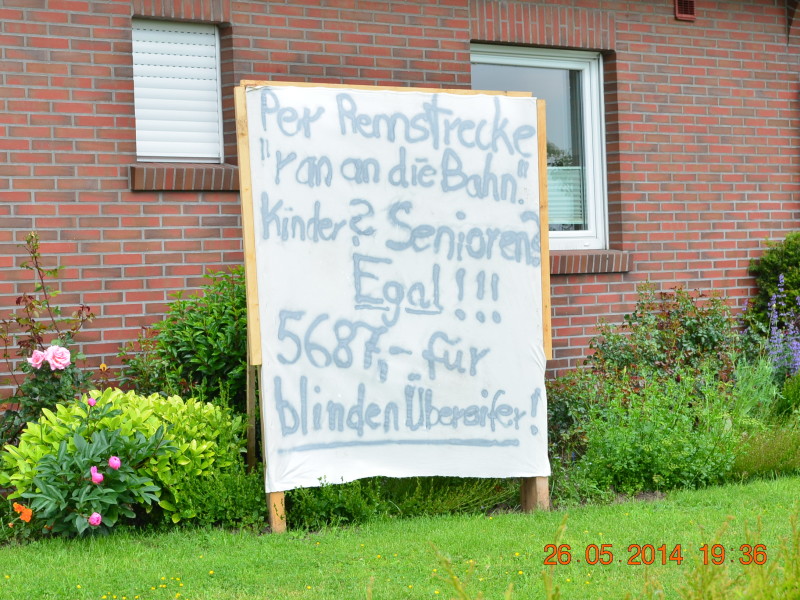 Per Rennstrecke
"ran an die Bahn."
Kinder? Senioren?
Egal!!!
5687,- für
blinden Übereifer!
26.05.2014 19:36